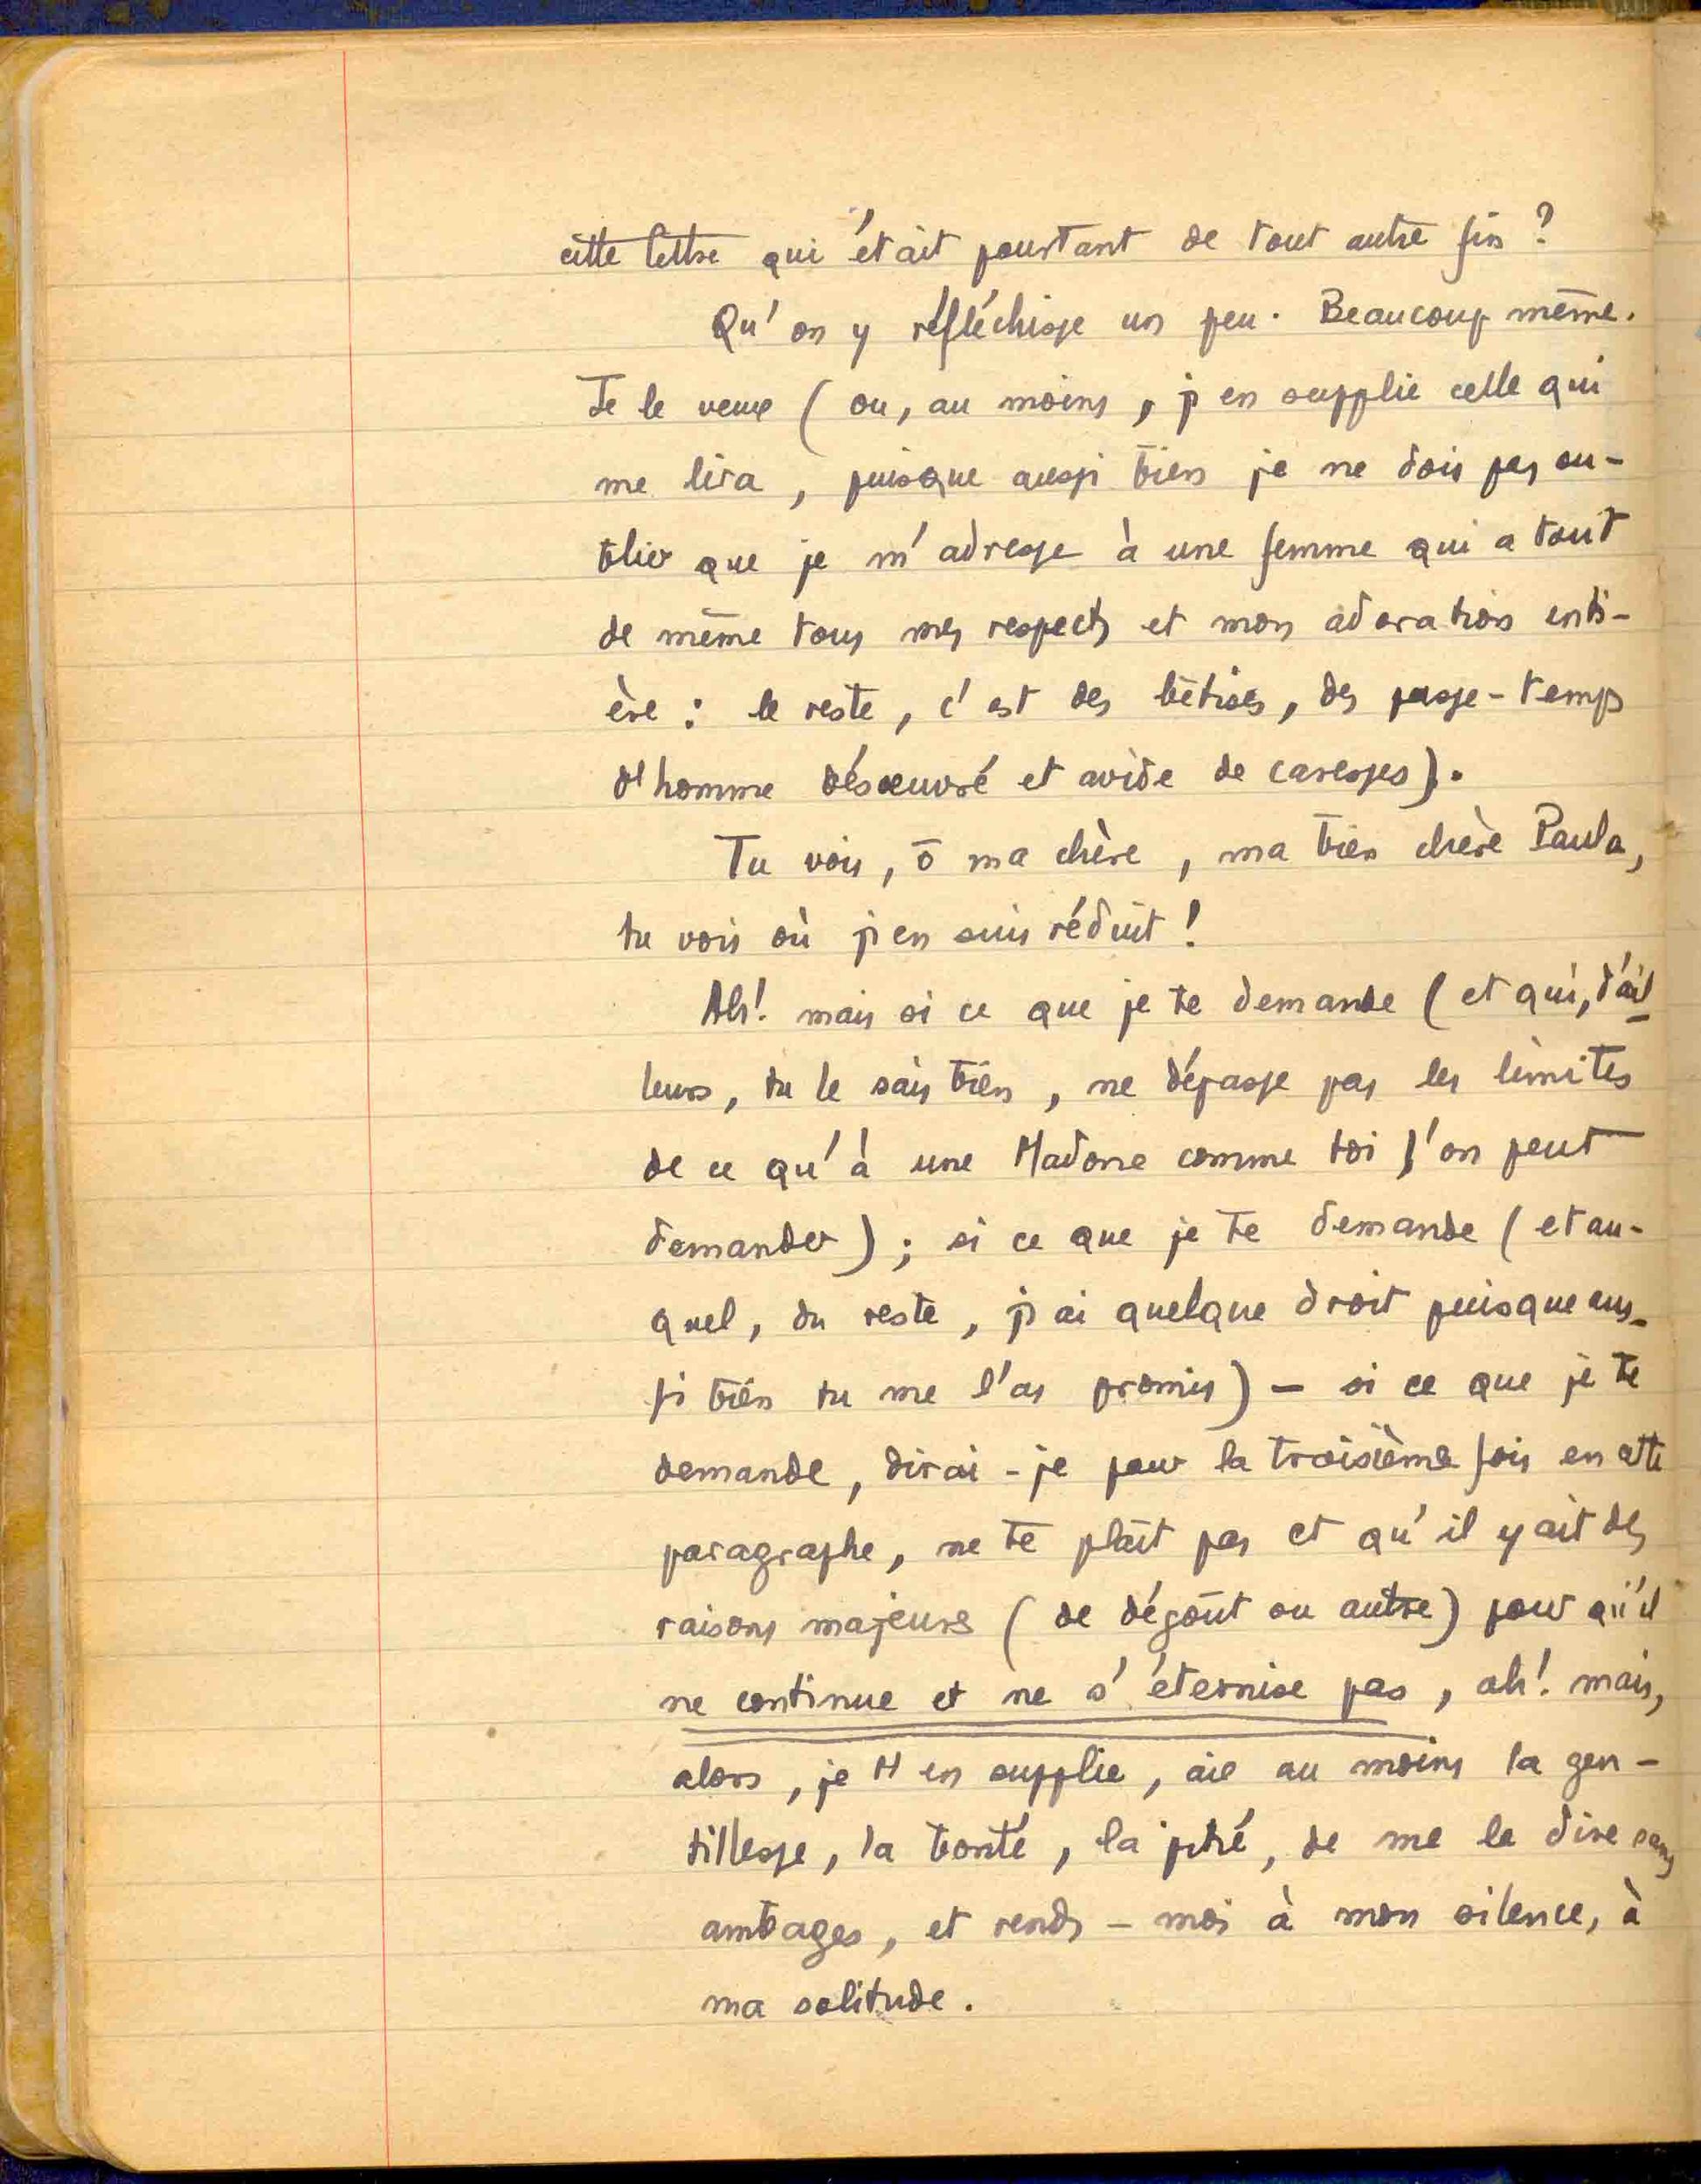 cette lettre qui était pourtant de tout autre fin ?
Qu'on y réfléchisse un peu. Beaucoup même.
Je le veux (ou, au moins, j'en supplie celle qui
me lira, puisque aussi bien je ne dois pas ou-
blier que je m'adresse à une femme qui a tout
de même tous mes respects et mon adoration enti-
ère : le reste, c'est des bêtises, des passe-temps
d'homme désœuvré et avide de caresses).
Tu vois, ô ma chère, ma bien chère Paula,
tu vois où j'en suis réduit !
Ah ! mais si ce que je te demande (et qui, d'ail
leurs, tu le sais bien, ne dépasse pas les limites
de ce qu'à une Madone comme toi l'on peut
demander) ; si ce que je te demande (et au-
quel, du reste, j'ai quelque droit puisque aus-
si bien tu me l'as promis) - si ce que je te
demande, dirai-je pour la troisième fois en cette
paragraphe, ne te plaît pas et qu'il y ait des
raisons majeures (de dégoût ou autre) pour qu'il
ne continue et ne s'éternise pas, ah ! mais,
alors, je t'en supplie, aie au moins la gen-
tillesse, la bonté, la pitié, de me le dire sans
ambages, et rends-moi à mon silence, à
ma solitude.